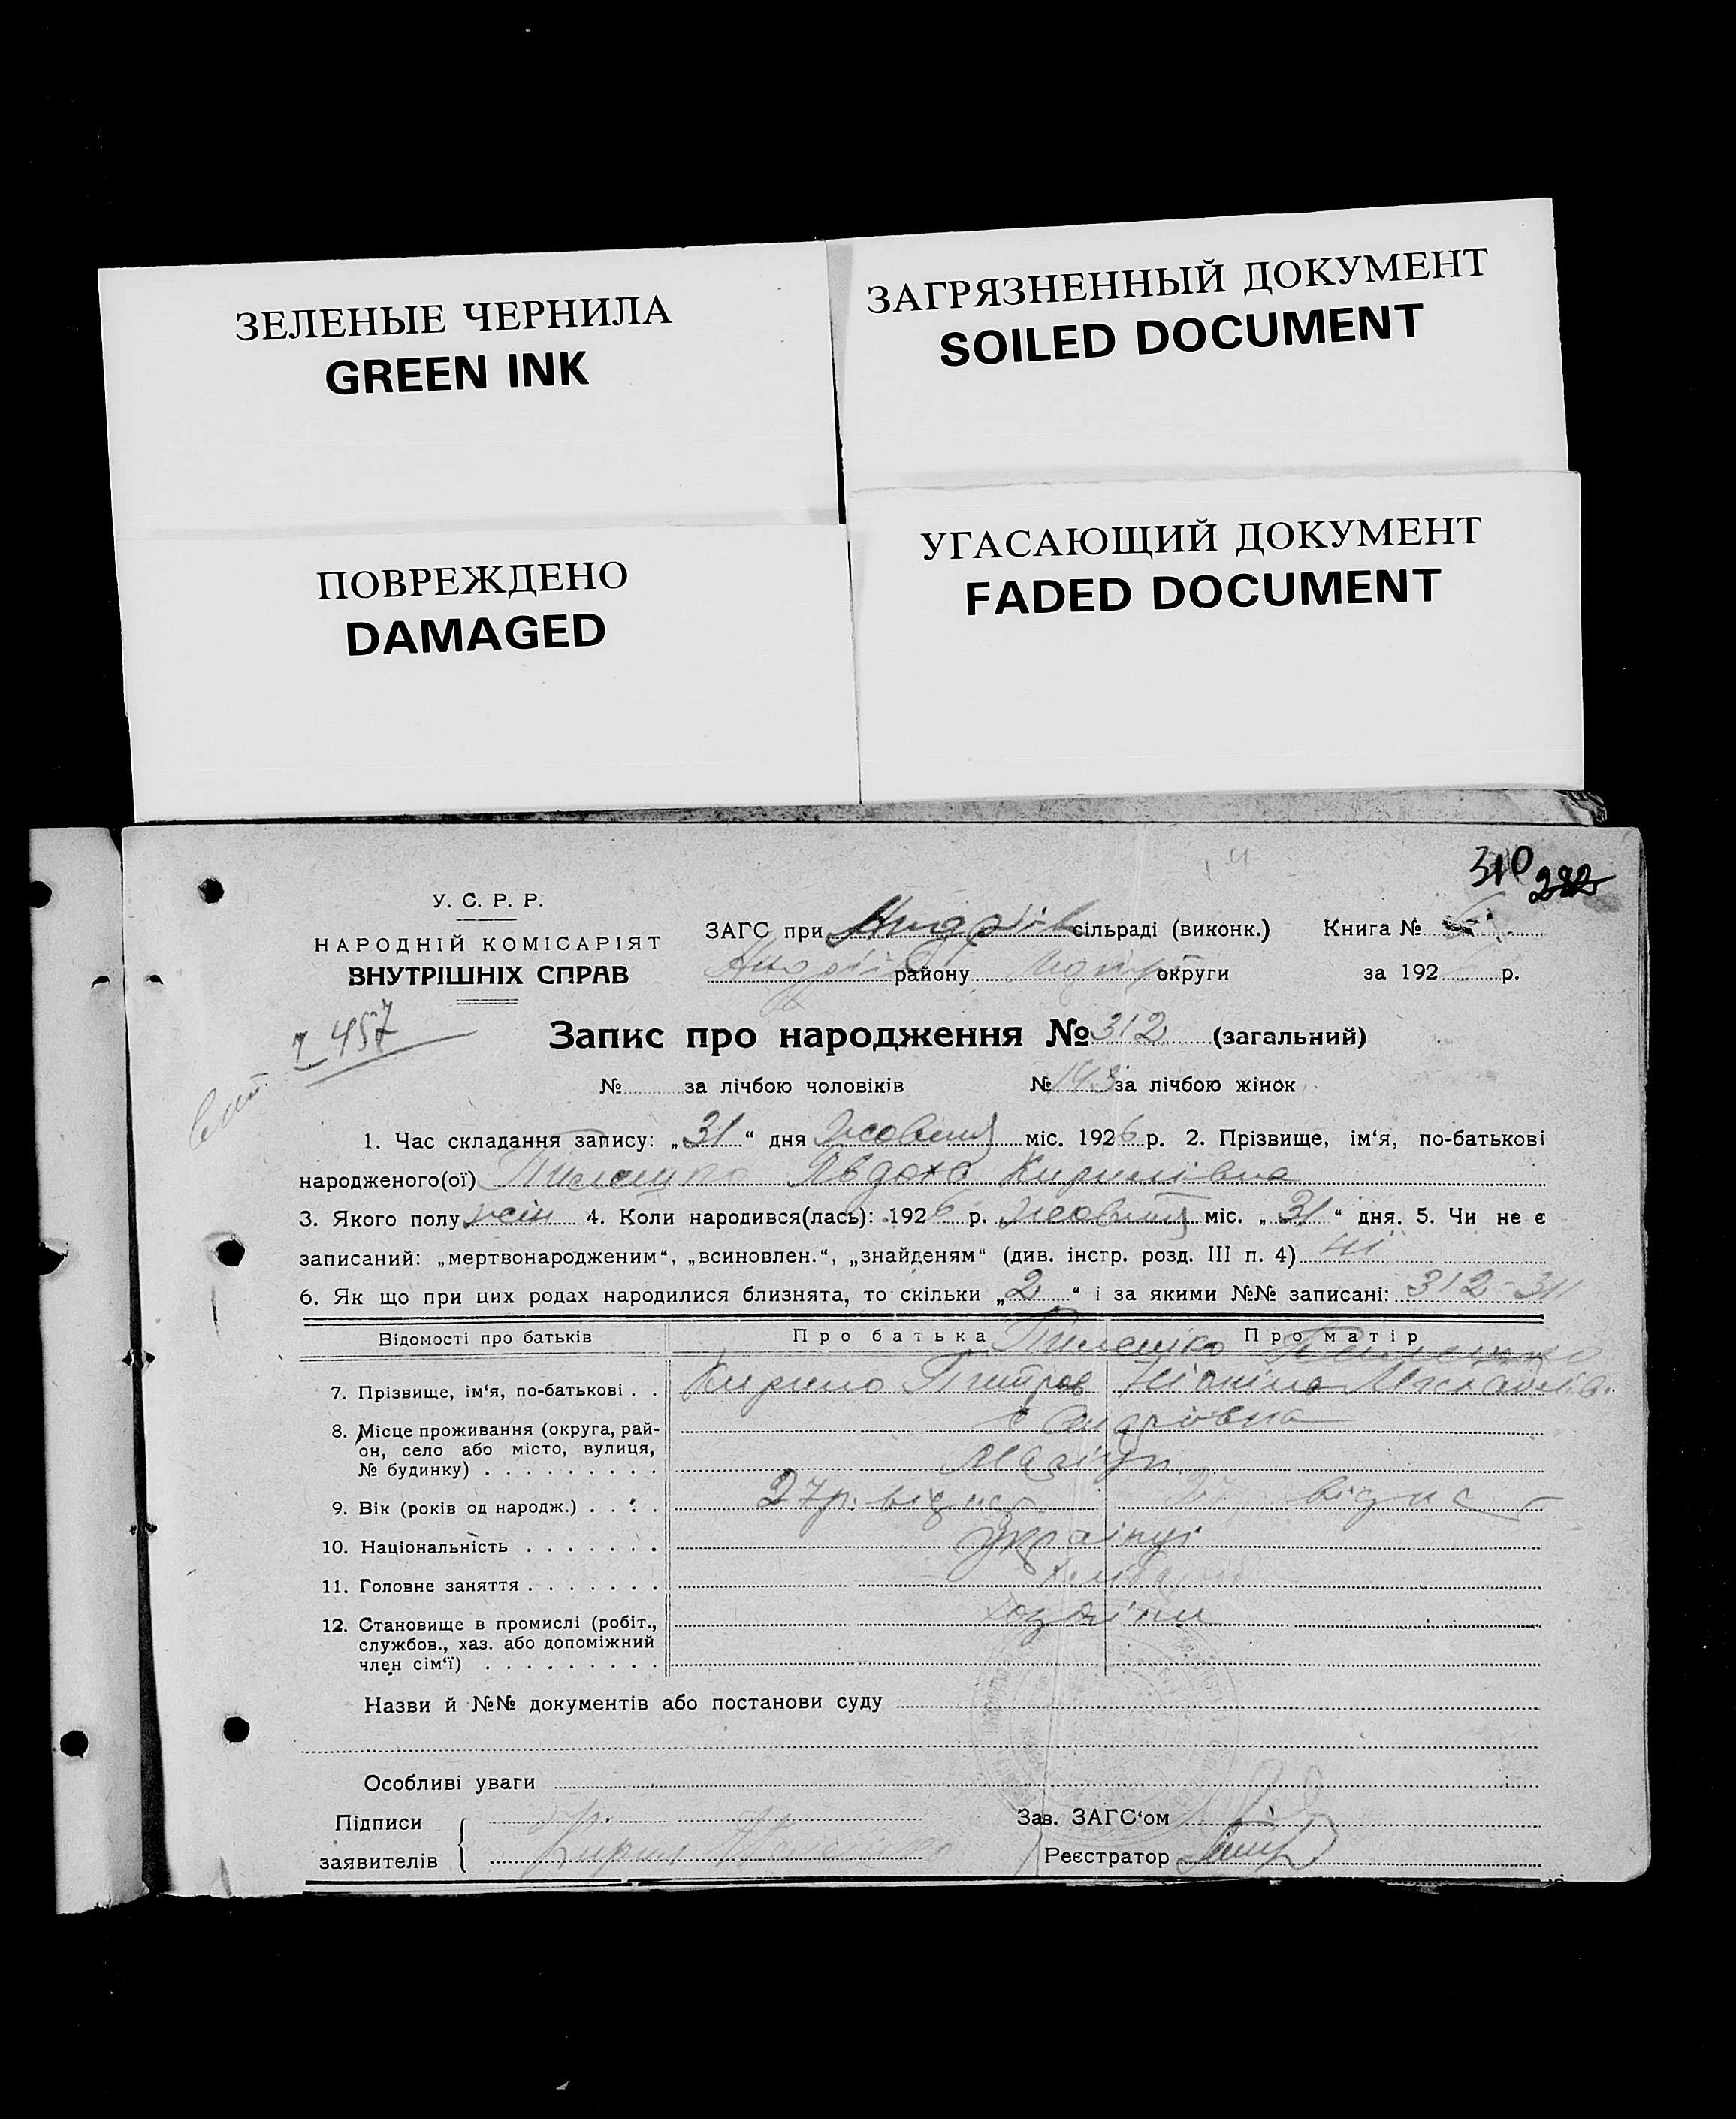 ЗЕЛЕНЫЕ ЧЕРНИЛА
GREEN INK
ЗАГРЯЗНЕННЫЙ ДОКУМЕНТ
SOILED DOCUMENT
ПОВРЕЖДЕНО
DAMAGED
УГАСАЮЩИЙ ДОКУМЕНТ
FADED DOCUMENT
310 282
У. С. Р. Р.
НАРОДНІЙ КОМІСАРІЯТ
ВНУТРІШНІХ СПРАВ
ЗАГС при сільраді (виконк.) Книга №
району округи за 192 р.
457
Запис про народження № 312 (загальний)
№ за лічбою чоловіків № 143 за лічбою жінок
1. Час складання запису: „31“ дня жовтня міс. 1926 р. 2. Прізвище, ім‘я, по-батькові
народженого(ої) Явдоха Кирилівна
3. Якого полу жін 4. Коли народився(лась): 1926 р. жовтня міс. „31“ дня. 5. Чи не є
записаний: „мертвонародженим“, „всиновлен.“, „знайденям“ (див. інстр. розд. III п. 4) ні
6. Як що при цих родах народилися близнята, то скільки „2“ і за якими №№ записані: 312-311
Відомості про батьків Про батька Про матір
7. Прізвище, ім‘я, по-батькові . . Кирило
8. Місце проживання (округа, рай-
он, село або місто, вулиця,
№ будинку) . . . . . . . . .
9. Вік (років од народж.) . . . . 27 р.
10. Національність . . . . . . . Українці
11. Головне заняття . . . . . . .
12. Становище в промислі (робіт.,
службов., хаз. або допоміжний
член сім‘ї) . . . . . . . . .
Назви й №№ документів або постанови суду
Особливі уваги
Підписи Зав. ЗАГС‘ом
заявителів Реєстратор